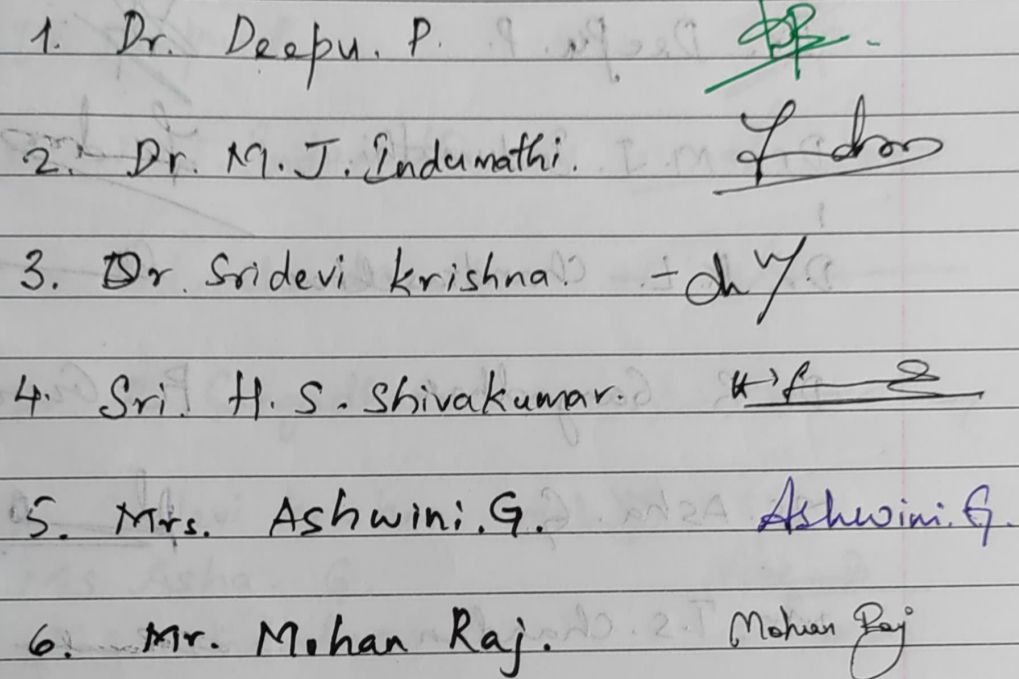 1. Dr. Deepu. P.
2. Dr. M. J. Indumathi.
3. Dr. Sridevi krishna.
4. Sri. H. S. Shivakumar.
5. Mrs. Ashwini. G. Ashwini. G.
6. Mr. Mohan Raj. Mohan Raj